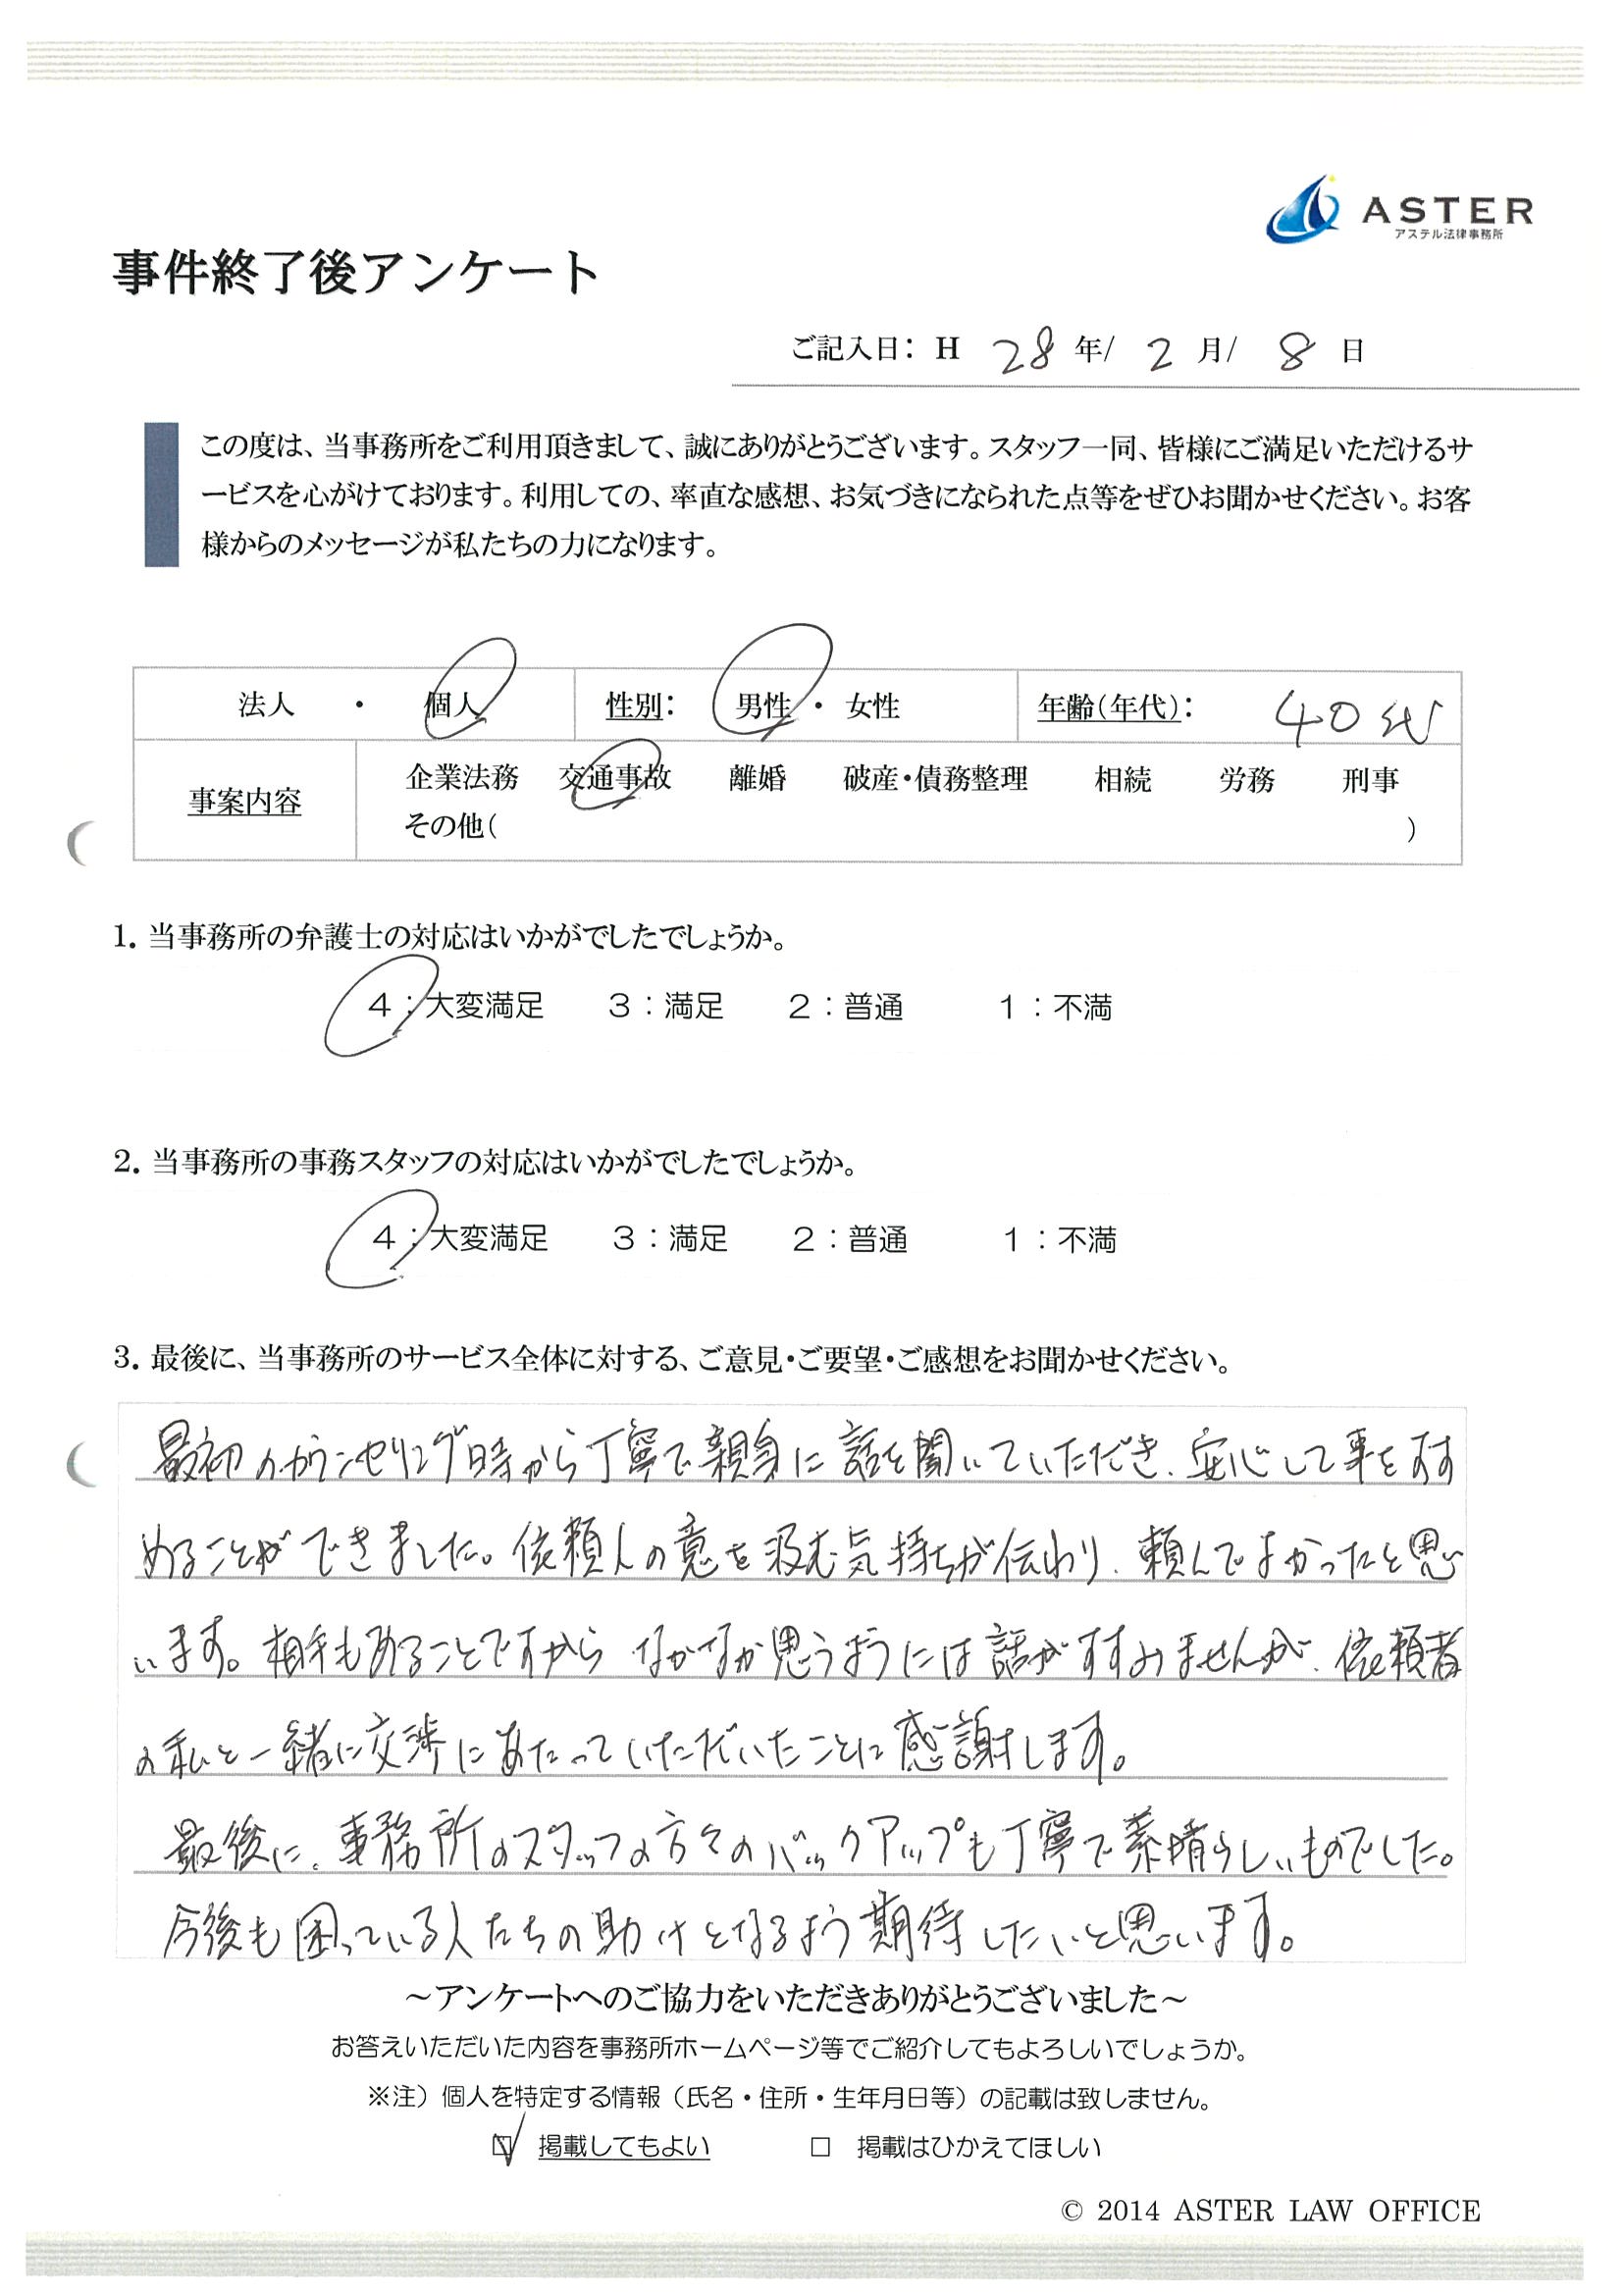 ASTER
アステル法律事務所
事件終了後アンケート
ご記入日： H 28 年/ 2 月/ 8 日
この度は、当事務所をご利用頂きまして、誠にありがとうございます。スタッフ一同、皆様にご満足いただけるサ
ービスを心がけております。利用しての、率直な感想、お気づきになられた点等をぜひお聞かせください。お客
様からのメッセージが私たちの力になります。
法人 ・ 個人 性別： 男性 ・ 女性 年齢（年代）： 40代
事案内容 企業法務 交通事故 離婚 破産・債務整理 相続 労務 刑事
その他（ ）
1．当事務所の弁護士の対応はいかがでしたでしょうか。
4：大変満足 3：満足 2：普通 1：不満
2．当事務所の事務スタッフの対応はいかがでしたでしょうか。
4：大変満足 3：満足 2：普通 1：不満
3．最後に、当事務所のサービス全体に対する、ご意見・ご要望・ご感想をお聞かせください。
最初のカウンセリング時から丁寧で親身に話を聞いていただき、安心して事をすす
めることができました。依頼人の意を汲む気持ちが伝わり、頼んでよかったと思い
います。相手もあることですから なかなか思うようには話がすすみませんが、依頼者
の私と一緒に交渉にあたっていただいたことに感謝します。
最後に、事務所のスタッフの方々のバックアップも丁寧で素晴らしいものでした。
今後も困っている人たちの助けとなるよう期待したいと思います。
～アンケートへのご協力をいただきありがとうございました～
お答えいただいた内容を事務所ホームページ等でご紹介してもよろしいでしょうか。
※注）個人を特定する情報（氏名・住所・生年月日等）の記載は致しません。
☑ 掲載してもよい □ 掲載はひかえてほしい
© 2014 ASTER LAW OFFICE